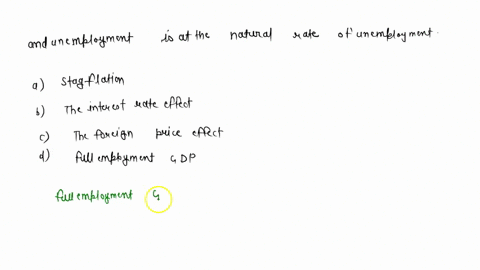 and unemployment is at the natural rate of unemployment.
a) Stagflation
b) The interest rate effect
c) The foreign price effect
d) full employment GDP
full employment G